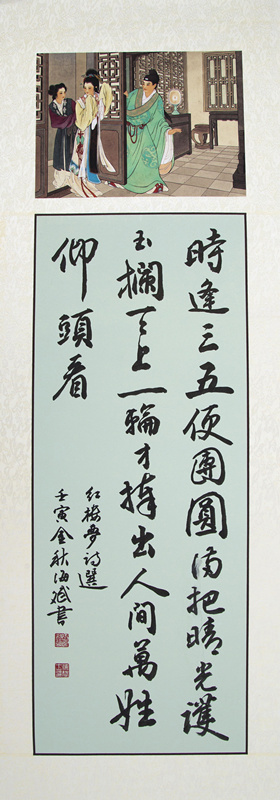 時逢三五便團圓滿把晴光護
玉欄天上一輪才捧出人間萬姓
仰頭看
紅樓夢詩選
壬寅金秋海斌書